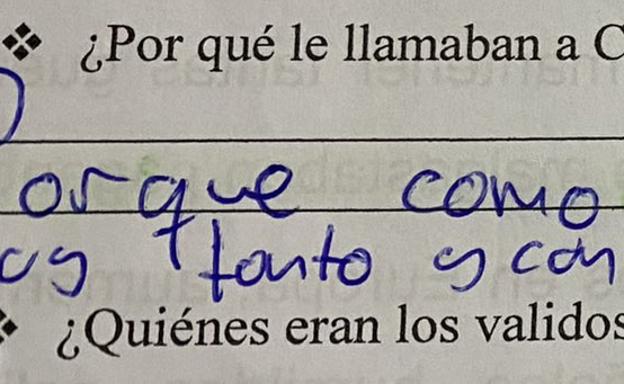 ❖ ¿Por qué le llamaban a C
orque como
tanto y con
¿Quiénes eran los validos